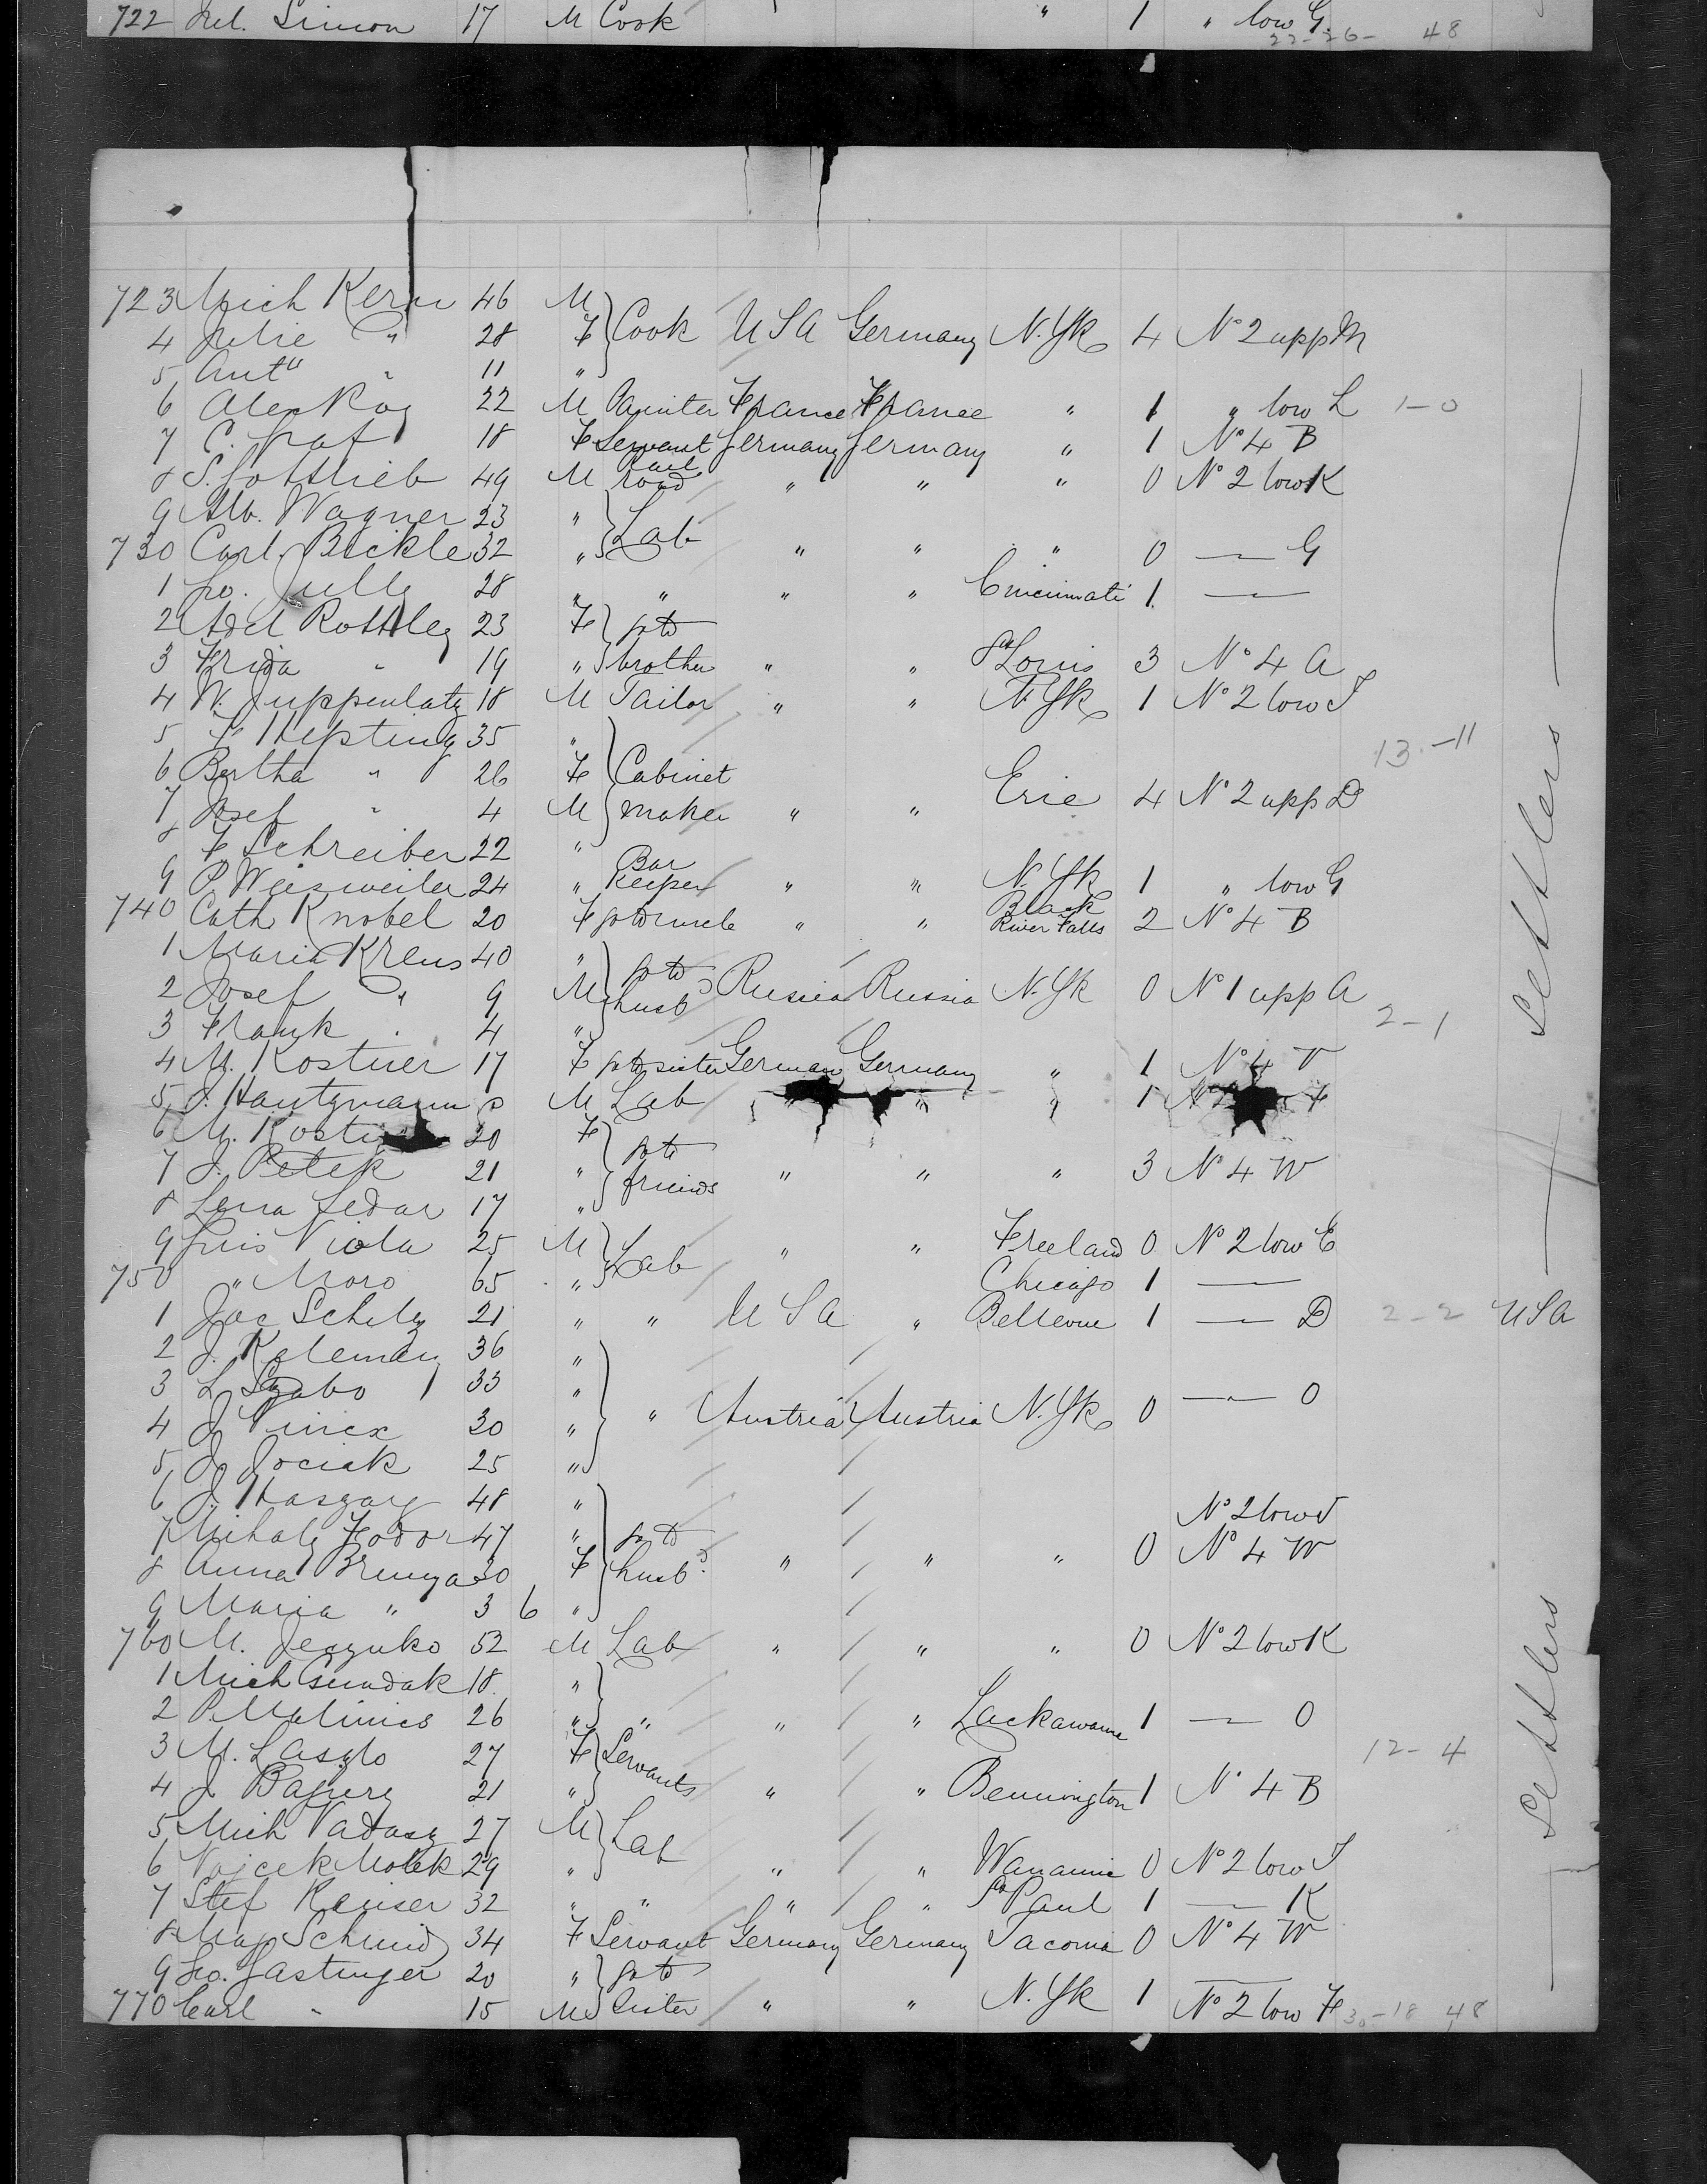 722 Jul. Simon 17 M Cook " 1 " low G.
22-26- 48
723 Mich Kern 46 M
4 Julie " 28 F Cook USA Germany N.Yk 4 No 2 upp M
5 Anta " 11 "
6 Alex 22 M Painter France France " 1 " low L 1-0
7 C. Graf 18 F Servant Germany Germany " 1 No 4 B
8 S. Gottlieb 49 M Rail road " " " 0 No 2 low K
9 Alb. Wagner 23 "
730 Carl Bickle 32 " Lab " " " 0 — G
1 28 " " " " Cincinnati 1 —
2 Adel 23 F go to
3 Frida " 19 " brother " " St Louis 3 No 4 A
4 W. Juppenlatz 18 M Tailor " " N.Yk 1 No 2 low J
5 F Hepting 35 "
13-11
6 Bertha " 26 F Cabinet
7 Josef " 4 M maker " " Erie 4 No 2 upp D
8 F Schreiber 22 "
9 P. Weisweiler 24 " Bar Keeper " " N.Yk 1 " low G
740 Cath Knobel 20 F go to uncle " " Black River Falls 2 No 4 B
1 Maria Krens 40 "
2 Josef " 9 M go to husbd Russia Russia N.Yk 0 No 1 upp A
3 Frank " 4 "
2-1
4 M. Kostner 17 F go to sister German Germany " 1 No 4 V
5 J. Hantzmann M Lab " " 1 F
6 M. 20 F
7 J. Petek 21 " go to friends " " " 3 No 4 W
8 Lena Sedar 17 "
9 Viola 25 M Lab " " Freeland 0 No 2 low E
750 " Moro 65 " Chicago 1 —
1 Jac Schily 21 " " USA " Bellevue 1 — D 2-2 USA
2 J. Kelemen 36 "
3 L Szabo 33 "
4 J Vincx 30 " " Austria Austria N.Yk 0 — O
5 J Jociak 25 "
6 J. Haszary 48 "
No 2 low J
7 Mihaly Fodor 47 " go to
8 Anna Brunya 30 F husbd. " " " 0 No 4 W
9 Maria " 3 6 "
760 M. Jeczuko 52 M Lab " " " 0 No 2 low K
1 Mich Gundak 18. "
2 P Malinics 26 " " " " Lackawanna 1 — O
3 M. Laszlo 27 F Servants
12-4
4 J 21 " " " Bennington 1 No 4 B
5 Mich Vadasz 27 M Lab
6 Vojcek Molek 29 " " " Wanamie 0 No 2 low J
7 Stef Kaiser 32 " " " " St Paul 1 — K
8 Mag Schmid 34 F Servant Germany Germany Tacoma 0 No 4 W
9 Gastinger 20 " go to —
770 Carl " 15 M Sister " " N.Yk 1 No 2 low F 30-18 48
— Settlers —
— Settlers